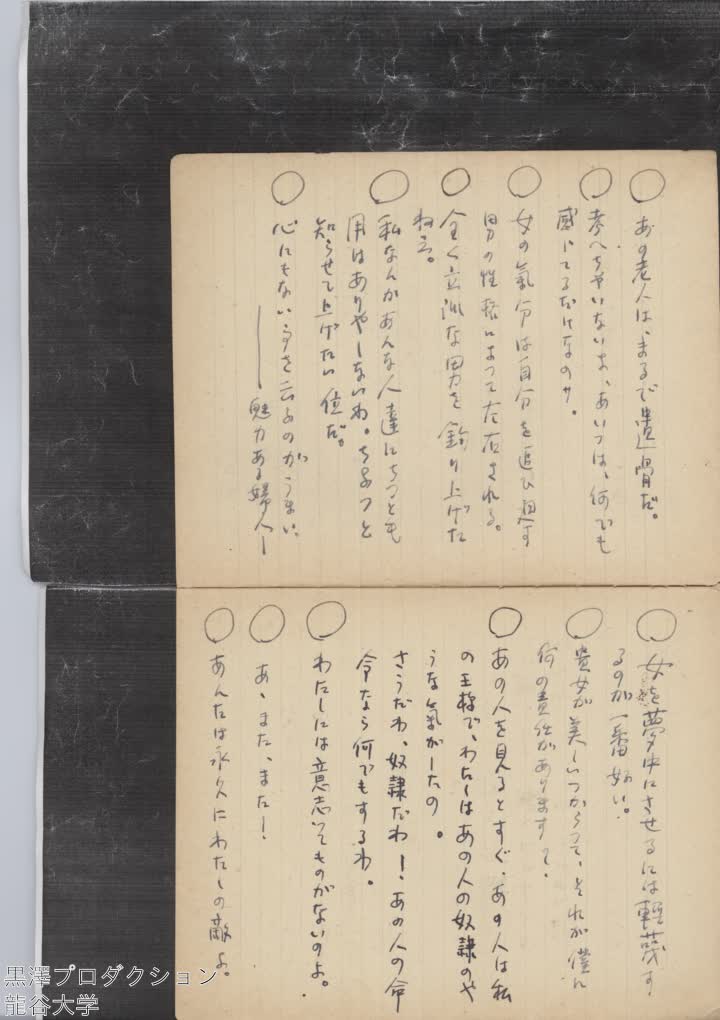 ○ あの老人は、まるで遺骨だ。
○ 考へちやいないよ、あいつは、何でも
感じてるだけなのサ。
○ 女の氣分は自分を追ひ廻す
男の性格によつて左右される。
○ 全く立派な男を釣り上げた
ねえ。
○ 私なんかあんな人達にちつとも
用はありやしないわ。ちよつと
知らせて上げたい位だ。
○ 心にもない事を云ふのがうまい、
――魅力ある婦人――
○ 女を夢中にさせるには軽蔑す
るのが一番好い。
○ 貴女が美しいつからつて、それが僕に
何の責任がありますて。
○ あの人を見るとすぐ、あの人は私
の王様で、わたしはあの人の奴隷のや
うな氣がしたの。
さうだわ、奴隷だわ!あの人の命
令なら何でもするわ。
○ わたしには意志つてものがないのよ。
○ あゝまた、また!
○ あんたは永久にわたしの敵よ。
黒澤プロダクション
龍谷大学